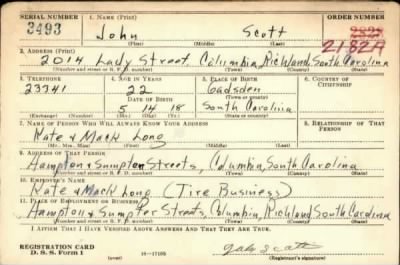 SERIAL NUMBER 1. NAME (Print) ORDER NUMBER
3493 John Scott 2828
(First) (Middle) (Last) 2182A
2. ADDRESS (Print)
2014 Lady Street, Columbia, Richland, South Carolina
(Number and street or R. F. D. number) (Town) (County) (State)
3. TELEPHONE 4. AGE IN YEARS 5. PLACE OF BIRTH 6. COUNTRY OF CITIZENSHIP
23341 22 Gadsden
DATE OF BIRTH (Town or county)
5 14 18 South Carolina
(Exchange) (Number) (Mo.) (Day) (Yr.) (State or country)
7. NAME OF PERSON WHO WILL ALWAYS KNOW YOUR ADDRESS 8. RELATIONSHIP OF THAT PERSON
Kate & Mack Long
(Mr., Mrs., Miss) (First) (Middle) (Last)
9. ADDRESS OF THAT PERSON
Hampton & Sumpter Streets, Columbia, South Carolina
(Number and street or R. F. D. number) (Town) (County) (State)
10. EMPLOYER'S NAME
Kate & Mack Long (Tire Business)
11. PLACE OF EMPLOYMENT OR BUSINESS
Hampton & Sumpter Streets, Columbia, Richland, South Carolina
(Number and street or R. F. D. number) (Town) (County) (State)
I AFFIRM THAT I HAVE VERIFIED ABOVE ANSWERS AND THAT THEY ARE TRUE.
REGISTRATION CARD
D. S. S. Form 1 16-17105 John Scott
(Registrant's signature)